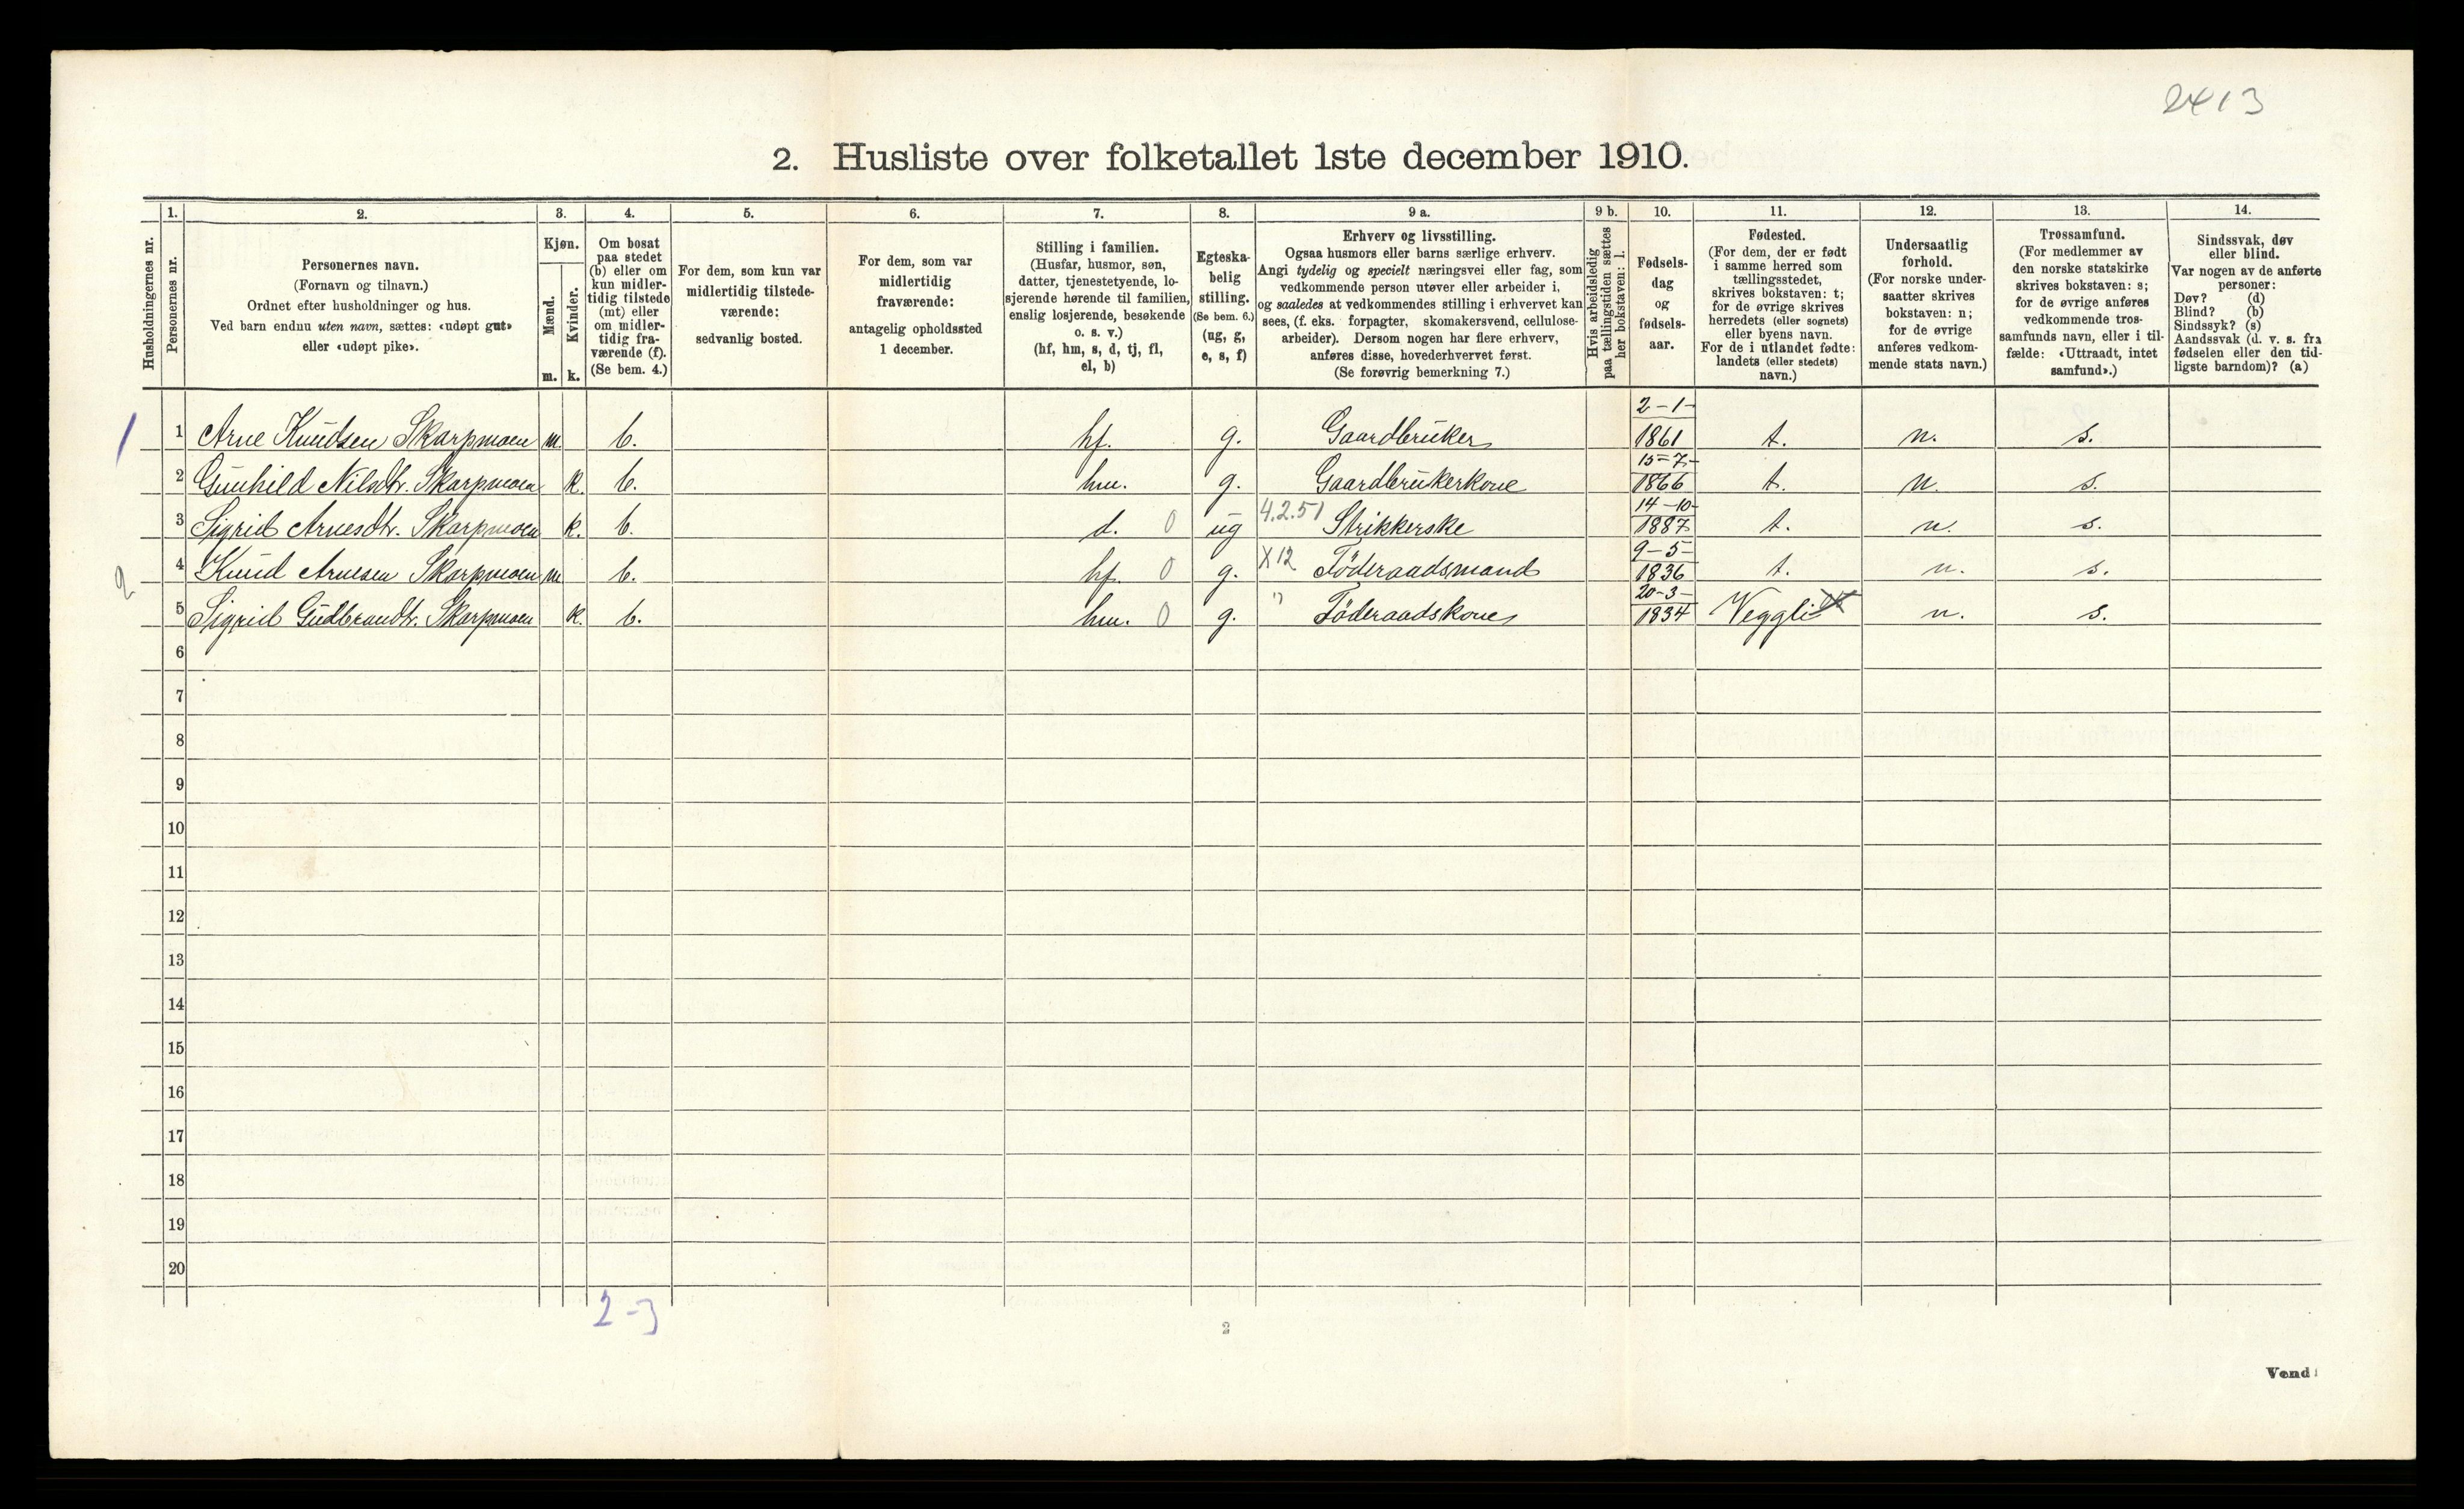 2413
2. Husliste over folketallet 1ste december 1910.
Husholdningernes nr.
1.
Personernes nr.
2.
Personernes navn.
(Fornavn og tilnavn.)
Ordnet efter husholdninger og hus.
Ved barn endnu uten navn, sættes: «udøpt gut»
eller «udøpt pike».
3.
Kjøn.
Mænd.
m.
Kvinder.
k.
4.
Om bosat
paa stedet
(b) eller om
kun midler-
tidig tilstede
(mt) eller
om midler-
tidig fra-
værende (f).
(Se bem. 4.)
5.
For dem, som kun var
midlertidig tilstede-
værende:
sedvanlig bosted.
6.
For dem, som var
midlertidig
fraværende:
antagelig opholdssted
1 december.
7.
Stilling i familien.
(Husfar, husmor, søn,
datter, tjenestetyende, lo-
sjerende hørende til familien,
enslig losjerende, besøkende
o. s. v.)
(hf, hm, s, d, tj, fl,
el, b)
8.
Egteska-
belig
stilling.
(Se bem. 6.)
(ug, g,
e, s, f)
9 a.
Erhverv og livsstilling.
Ogsaa husmors eller barns særlige erhverv.
Angi tydelig og specielt næringsvei eller fag, som
vedkommende person utøver eller arbeider i,
og saaledes at vedkommendes stilling i erhvervet kan
sees, (f. eks. forpagter, skomakersvend, cellulose-
arbeider). Dersom nogen har flere erhverv,
anføres disse, hovederhvervet først.
(Se forøvrig bemerkning 7.)
9 b.
Hvis arbeidsledig
paa tællingstiden sættes
her bokstaven: l.
10.
Fødsels-
dag
og
fødsels-
aar.
11.
Fødested.
(For dem, der er født
i samme herred som
tællingsstedet,
skrives bokstaven: t;
for de øvrige skrives
herredets (eller sognets)
eller byens navn.
For de i utlandet fødte:
landets (eller stedets)
navn.)
12.
Undersaatlig
forhold.
(For norske under-
saatter skrives
bokstaven: n;
for de øvrige
anføres vedkom-
mende stats navn.)
13.
Trossamfund.
(For medlemmer av
den norske statskirke
skrives bokstaven: s;
for de øvrige anføres
vedkommende tros-
samfunds navn, eller i til-
fælde: «Uttraadt, intet
samfund».)
14.
Sindssvak, døv
eller blind.
Var nogen av de anførte
personer:
Døv? (d)
Blind? (b)
Sindssyk? (s)
Aandssvak (d. v. s. fra
fødselen eller den tid-
ligste barndom)? (a)
1 1 Arne Knudsen Skarpmoen m. b. hf. g. Gaardbruker 2-1-1861 t. n. s.
2 Gunhild Nilsdtr. Skarpmoen k. b. hm. g. Gaardbrukerkone 15=7-1866 t. n. s.
3 Sigrid Arnesdtr. Skarpmoen k. b. d. 0 ug 4.2.51 Strikkerske 14-10-1887 t. n. s.
2 4 Knud Arnesen Skarpmoen m b. hf. 0 g. X12 Föderaadsmand 9-5-1836 t. n. s.
5 Sigrid Gudbrandtr. Skarpmoen k. b. hm. 0 g. " Föderaadskone 20-3-1834 Veggli n. s.
6
7
8
9
10
11
12
13
14
15
16
17
18
19
20
2-3
2
Vend